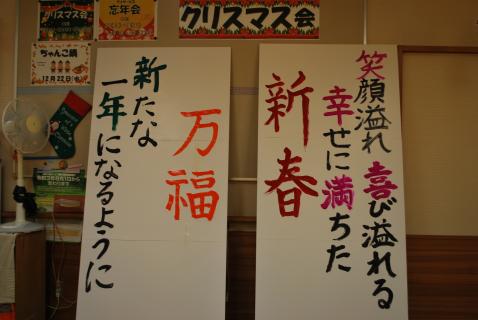 クリスマス会
忘年会
クリスマス会
ちゃんこ鍋
12月22日
笑顔溢れ 喜び溢れる
幸せに満ちた
新春
万福
新たな
一年になるように